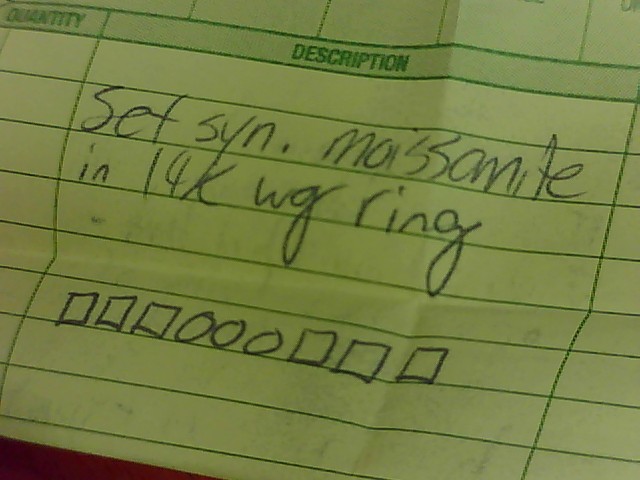 QUANTITY
DESCRIPTION
Set syn. moissanite
in 14K wg ring